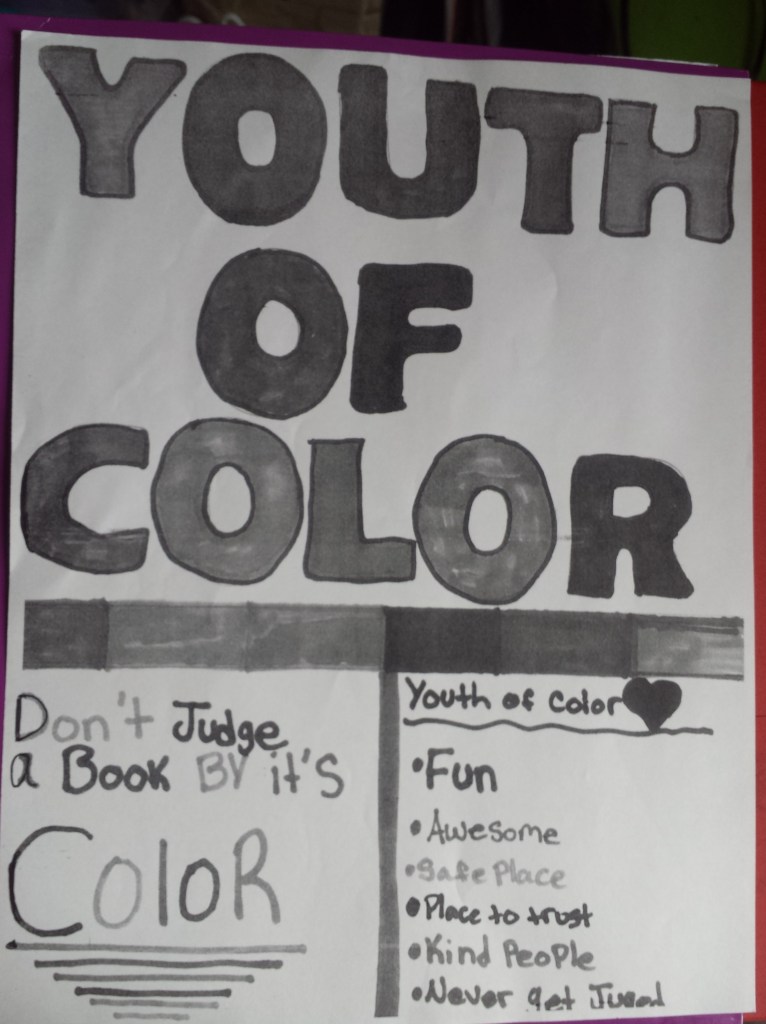 YOUTH
OF
COLOR
Don't Judge
a Book BY it's
Color
Youth of color
• Fun
• Awesome
• Safe Place
• Place to trust
• Kind People
• Never get